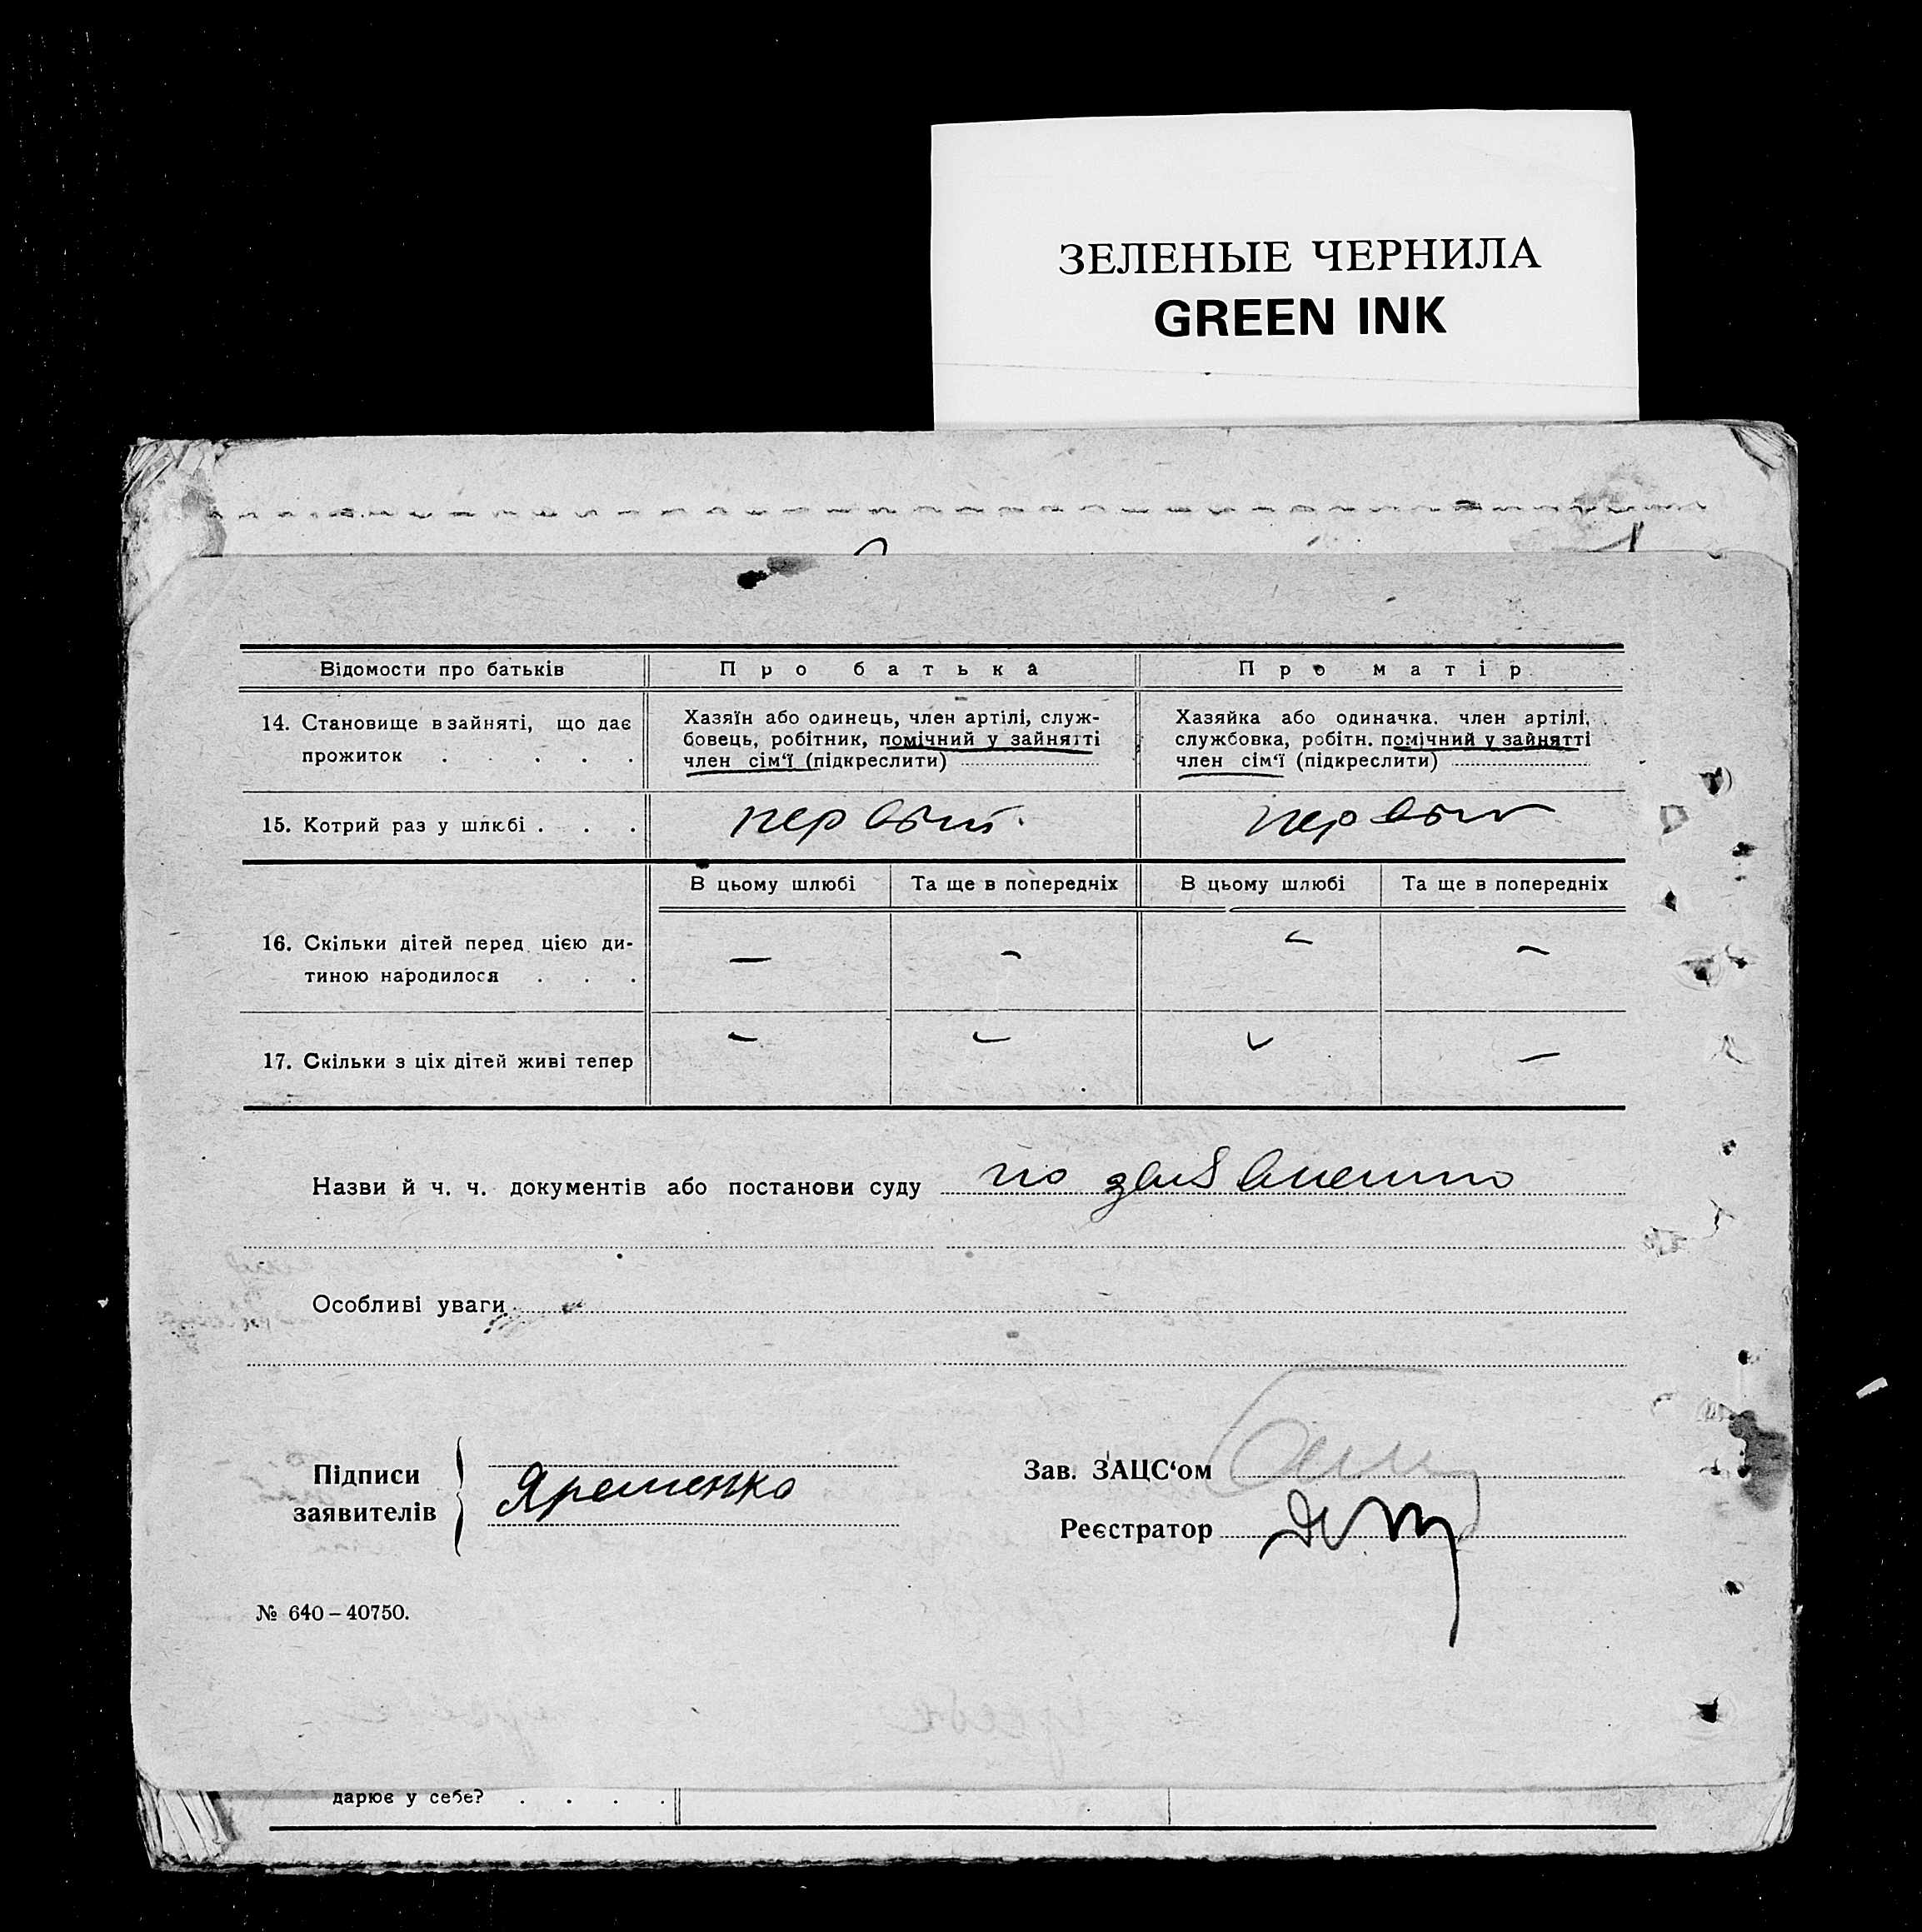 ЗЕЛЕНЫЕ ЧЕРНИЛА
GREEN INK
Відомости про батьків
Про батька
Про матір
14. Становище в зайняті, що дає
прожиток
Хазяїн або одинець, член артілі, служ-
бовець, робітник, помічний у зайнятті
член сім'ї (підкреслити)
Хазяйка або одиначка. член артілі,
службовка, робітн. помічний у зайнятті
член сім'ї (підкреслити)
15. Котрий раз у шлюбі . . .
первый
первый
В цьому шлюбі
Та ще в попередніх
В цьому шлюбі
Та ще в попередніх
16. Скільки дітей перед цією ди-
тиною народилося . . .
— — — —
17. Скільки з ціх дітей живі тепер
— — — —
Назви й ч. ч. документів або постанови суду по
Особливі уваги
Підписи
заявителів
Яременко
Зав. ЗАЦС'ом
Реєстратор
№ 640–40750.
дарює у себе? . . . .